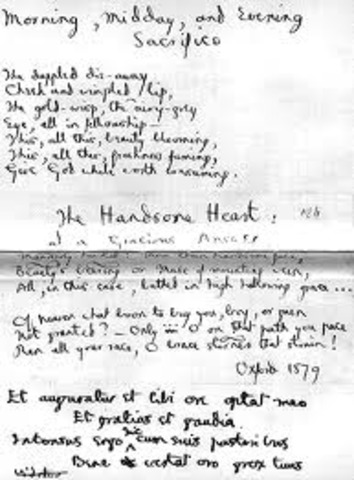 Morning, Midday, and Evening
Sacrifice
The dappled die-away
Cheek and wimpled lip,
The gold-wisp, the airy-grey
Eye, all in fellowship—
This, all this, beauty blooming,
This, all this, freshness fuming,
Give God while worth consuming.
The Handsome Heart:
at a Gracious Answer
Beauty's bearing or muse of mounting vein,
All, in this case, bathed in high hallowing grace ...
Of heaven what boon to buy you, boy, or gain
Not granted? — Only O on that path you pace
Run all your race, O brace sterner that strain!
Oxford 1879
Et tibi ore optat meo
Et gratias et gaudia
Intonsus ergo cum suis pastoribus
Bene oro grex tuus